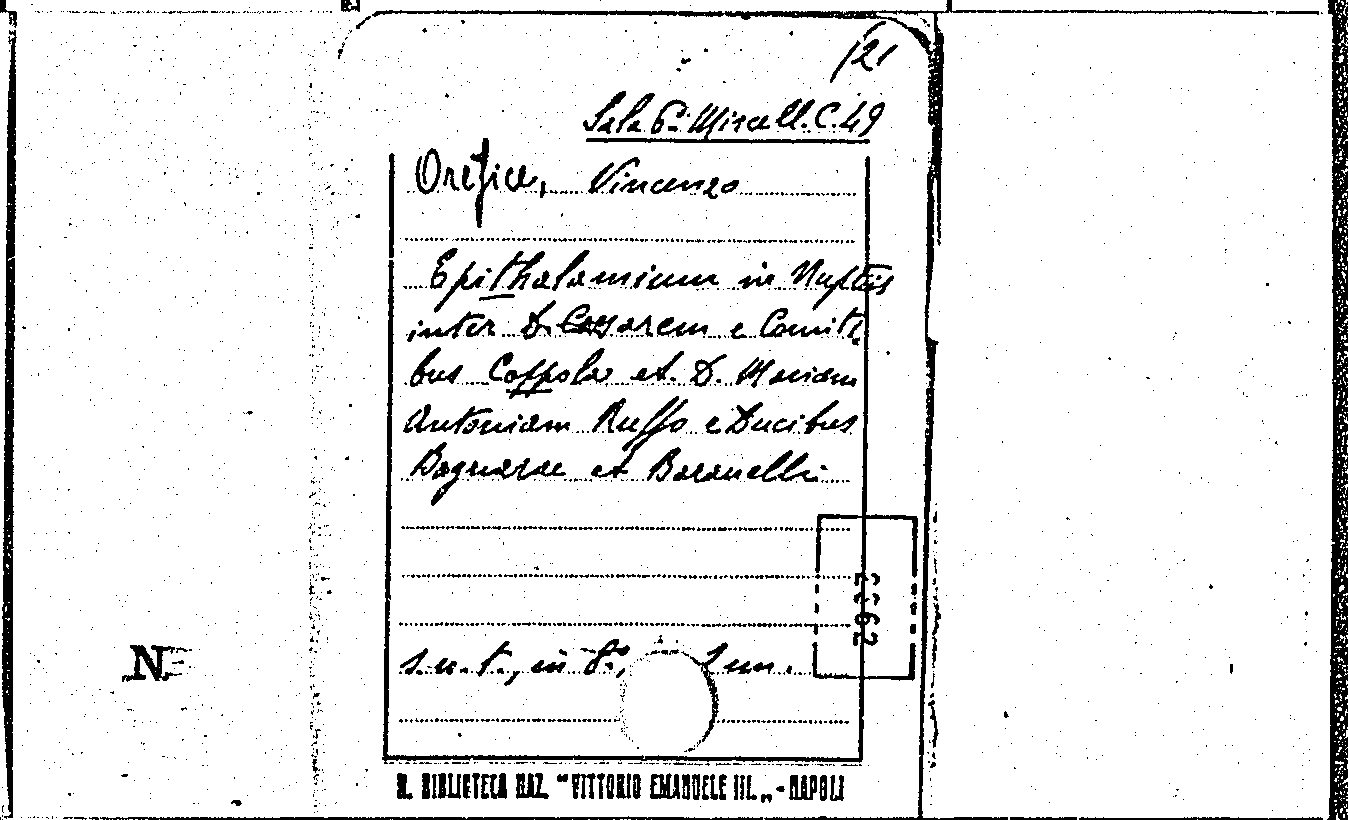 121
Sala 6ª Miscell. C. 49
Orefice, Vincenzo
Epithalamium in Nuptiis
inter D. Caesarem e Comiti
bus Coppola et D. Mariam
Antoniam Ruffo e Ducibus
Bagnarae et Baranelli
s. n. t., in 8°, num.
N
R. BIBLIOTECA NAZ. "VITTORIO EMANUELE III„ - NAPOLI